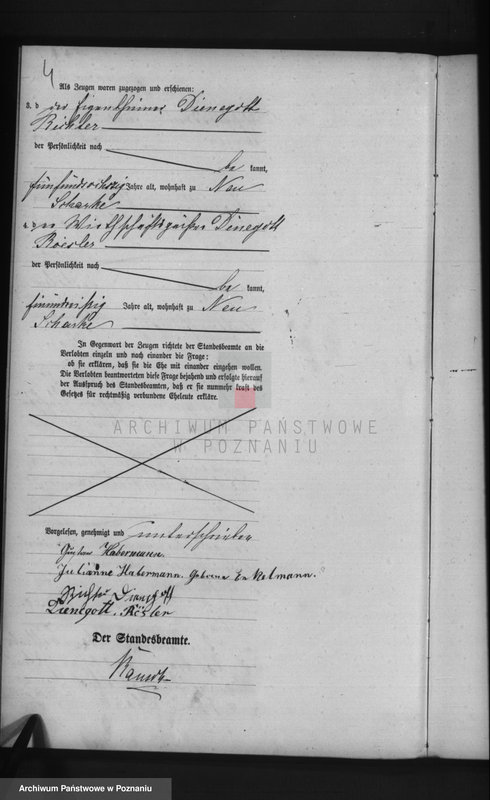 4
Als Zeugen waren zugezogen und erschienen:
3. der Eigenthümer Dienegott
Richter
der Persönlichkeit nach
be kannt,
fünfundsechszig Jahre alt, wohnhaft zu Neu
Scharke
4. der Wirthschaftsbesitzer Dienegott
Roesler
der Persönlichkeit nach
be kannt,
Jahre alt, wohnhaft zu Neu
Scharke
In Gegenwart der Zeugen richtete der Standesbeamte an die
Verlobten einzeln und nach einander die Frage:
ob sie erklären, daß sie die Ehe mit einander eingehen wollen.
Die Verlobten beantworteten diese Frage bejahend und erfolgte hierauf
der Ausspruch des Standesbeamten, daß er sie nunmehr kraft des
Gesetzes für rechtmäßig verbundene Eheleute erkläre.
ARCHIWUM PAŃSTWOWE
W POZNANIU
Vorgelesen, genehmigt und unterschrieben
Gustav Habermann.
Julianne Habermann. Geborene
Richter Dienegott
Dienegott. Rösler
Der Standesbeamte.
Archiwum Państwowe w Poznaniu